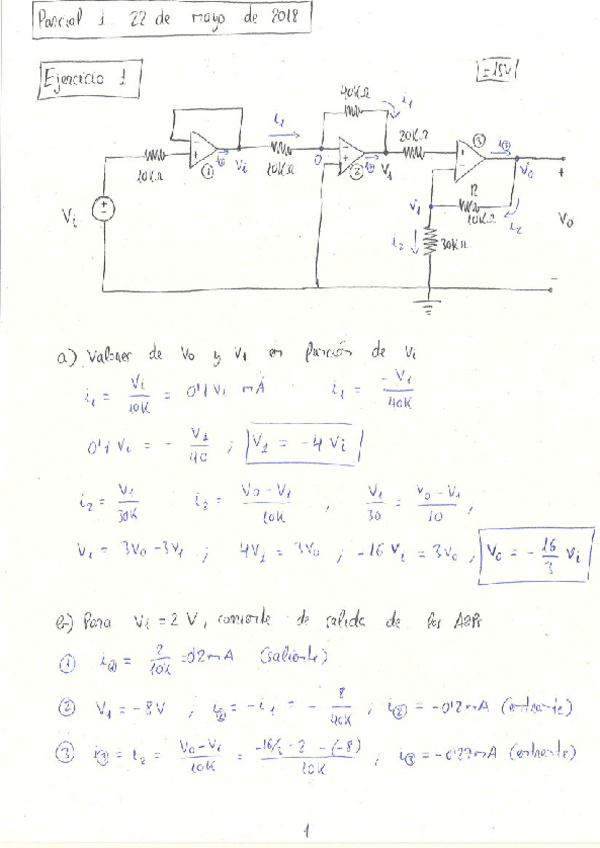 Parcial 1 22 de mayo de 2018
Ejercicio 1
±15V
40KΩ
i1
i1
20KΩ
10KΩ
10KΩ
Vi
0
V1
V0
1
2
3
Vi
V1
R
10KΩ
i2
i2
30KΩ
V0
a) Valores de V0 y V1 en función de Vi
i1 = Vi/10K = 0'1 Vi mA i1 = -V1/40K
0'1 Vi = - V1/40 ; V1 = -4 Vi
i2 = V1/30K i2 = V0-V1/10K , V1/30 = V0-V1/10 ,
V1 = 3V0 - 3V1 ; 4V1 = 3V0 ; -16 Vi = 3V0 , V0 = - 16/3 Vi
b) Para Vi = 2 V, corriente de salida de los AOPs
① i① = 2/10K = 0'2 mA (saliente)
② V1 = -8V ; i② = -i1 = - 8/40K ; i② = -0'2 mA (entrante)
③ i③ = i2 = V0-V1/10K = -16/3 · 2 - (-8)/10K ; i③ = -0'27 mA (entrante)
1